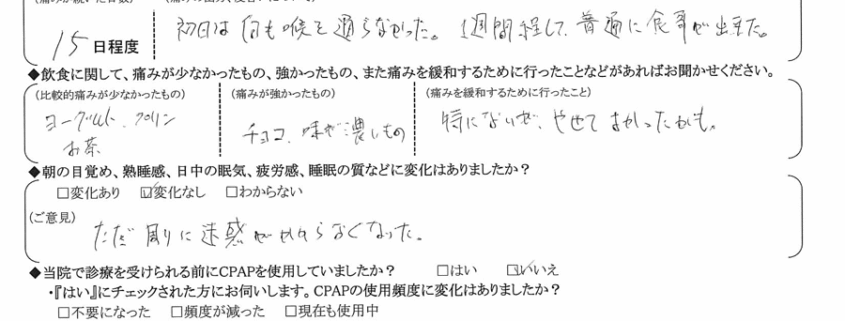 15日程度
初日は何も喉を通らなかった。1週間経して、普通に食事が出来た。
◆飲食に関して、痛みが少なかったもの、強かったもの、また痛みを緩和するために行ったことなどがあればお聞かせください。
(比較的痛みが少なかったもの) (痛みが強かったもの) (痛みを緩和するために行ったこと)
ヨーグルト、プリン
お茶
チョコ、味が濃いもの
特にないが、やせてよかったかも。
◆朝の目覚め、熟睡感、日中の眠気、疲労感、睡眠の質などに変化はありましたか?
□変化あり ☑変化なし □わからない
(ご意見)
ただ周りに迷惑がかからなくなった。
◆当院で診療を受けられる前にCPAPを使用していましたか? □はい ☑いいえ
・『はい』にチェックされた方にお伺いします。CPAPの使用頻度に変化はありましたか?
□不要になった □頻度が減った □現在も使用中